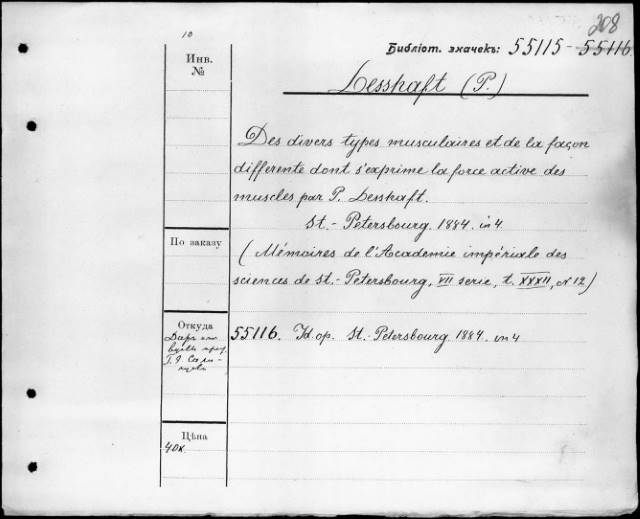 10
208
Библіот. значекъ: 55115 - 55116
Инв.
№
Lesshaft (P.)
Des divers types musculaires et de la façon
differente dont s'exprime la force active des
muscles par P. Lesshaft.
St.- Petersbourg. 1884. in 4.
По заказу
(Mémoires de l'Academie impériale des
sciences de St.- Petersbourg, VII serie, t. XXXII, N 12)
Откуда
Даръ
Г. Я.
55116. Id. op. St.- Petersbourg. 1884. in 4
Цѣна
40к.